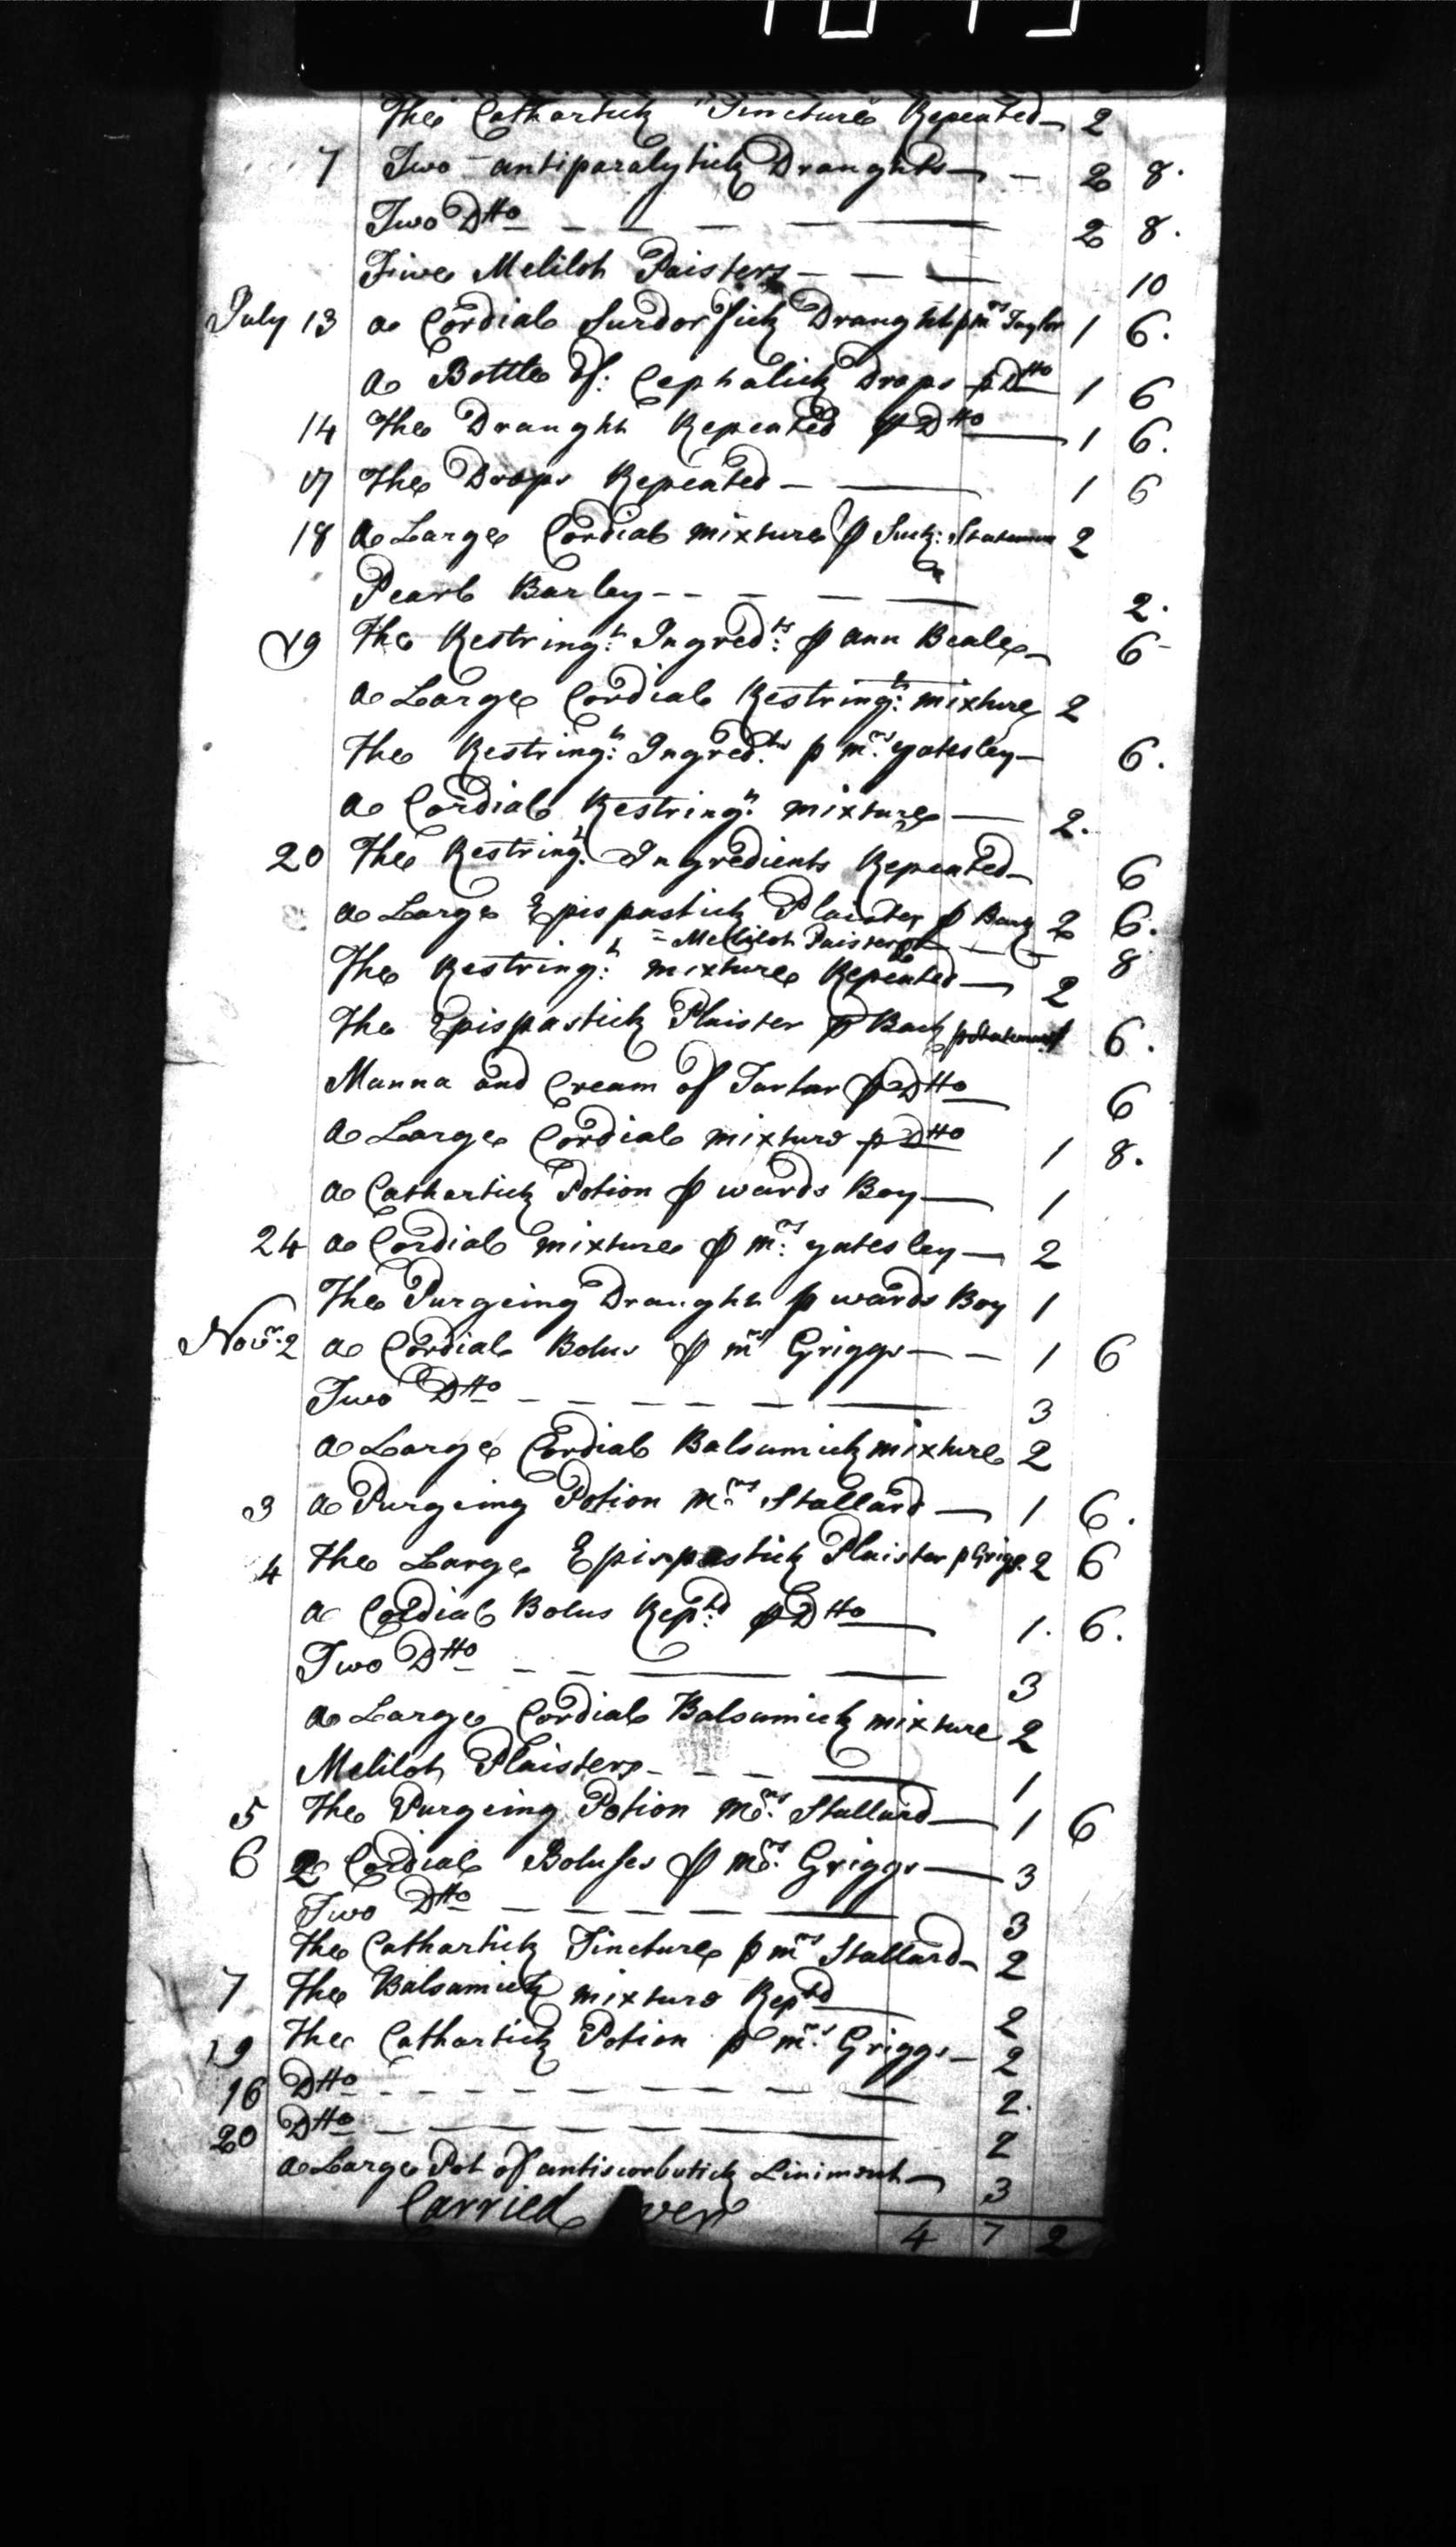 The Cathartick Tincture Repeated 2
7 Two antiparalytick Draughts 2 8.
Two Dtto 2 8.
Five Melilot Plaisters 10
July 13 a Cordial Draught p mrs Taylor 1 6.
a Bottle of: Cephalick Drops p Dtto 1 6
14 The Draught Repeated p Dtto 1 6.
17 The Drops Repeated 1 6
18 a Large Cordial mixture p 2
Pearl Barley 2.
19 The Restringt: Ingredts: p ann Beale 6
a Large Cordial Restringt: mixture 2
The Restringt: Ingredts: p mrs: yatesley 6.
a Cordial Restringt: mixture 2.
20 The Restringt. Ingredients Repeated 6
a Large Epispastick Plaister p Back 2 6.
Melilot Plaister 8
The Restringt: mixture Repeated 2
The Epispastick Plaister p Back 6.
Manna and Cream of Tartar p Dtto 6
a Large Cordial mixture p Dtto 1 8.
a Cathartick Potion p wards Boy 1
24 a Cordial mixture p mrs: yatesley 2
The Purgeing Draught p wards Boy 1
Novr. 2 a Cordial Bolus p mrs Griggs 1 6
Two Dtto 3
a Large Cordial Balsamick mixture 2
3 a Purgeing Potion Mrs: Stallard 1 6.
4 The Large Epispastick Plaister p Grigs. 2 6
a Cordial Bolus Rep:td p Dtto 1. 6.
Two Dtto 3
a Large Cordial Balsamick mixture 2
Melilot Plaisters 1
5 The Purgeing Potion Mrs: Stallard 1 6
6 2 Cordial Boluses p Mrs: Griggs 3
Two Dtto 3
The Cathartick Tincture p mrs Stallard 2
7 The Balsamick mixture Reptd 2
19 The Cathartick Potion p mrs: Griggs 2
16 Dtto 2.
20 Dtto 2
a Large Pot of antiscorbutick Liniment 3
Carried over 4 7 2